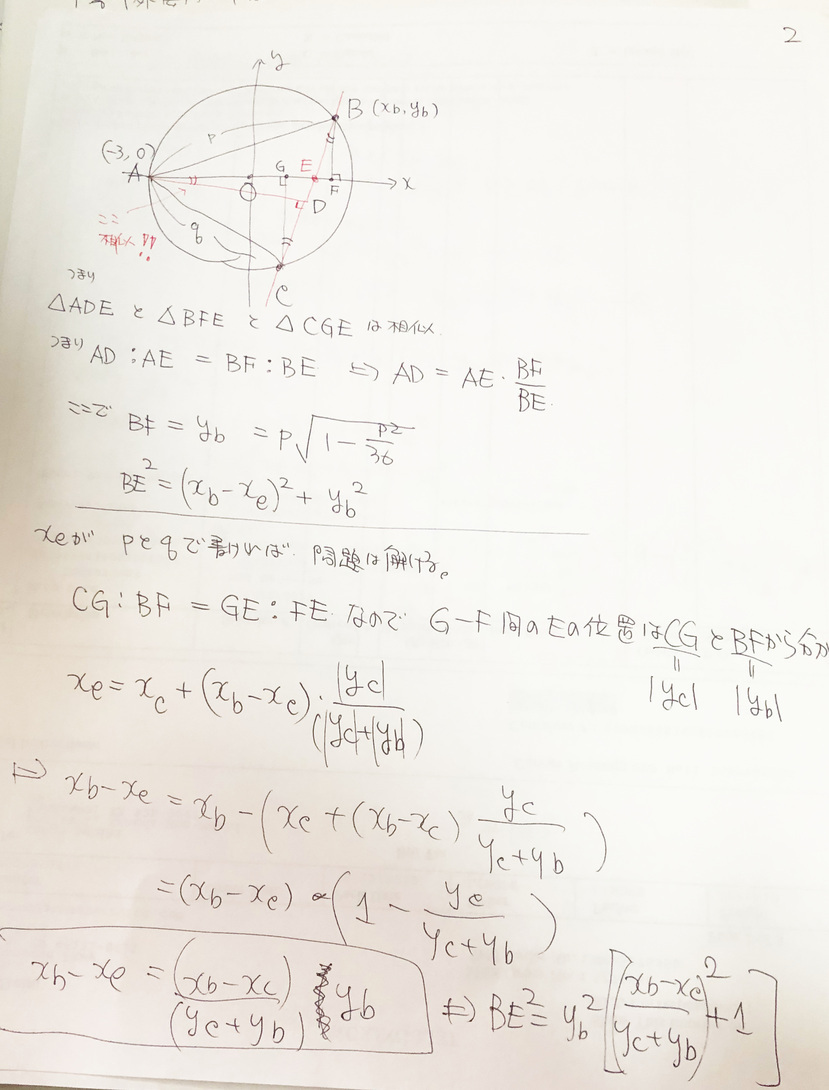 2
y
B (xb, yb)
(-3, 0)
P
A
G
E
F
x
O
D
ここ
相似!!
q
C
つまり
△ADE と △BFE と △CGE は相似.
つまり AD : AE = BF : BE ⇔ AD = AE · BF/BE.
ここで BF = yb = P√(1 - P²/36)
BE² = (xb - xe)² + yb²
xeが pとqで書ければ 問題は解ける。
CG : BF = GE : FE. なので G-F間のEの位置はCGとBFから分か
|yc| |yb|
xe = xc + (xb - xc) · |yc|/(|yc|+|yb|)
⇔ xb - xe = xb - (xc + (xb - xc) yc/(yc + yb))
= (xb - xc) (1 - yc/(yc + yb))
xb - xe = (xb - xc)/(yc + yb) yb ⇔ BE² = yb² [((xb - xc)/(yc + yb))² + 1]